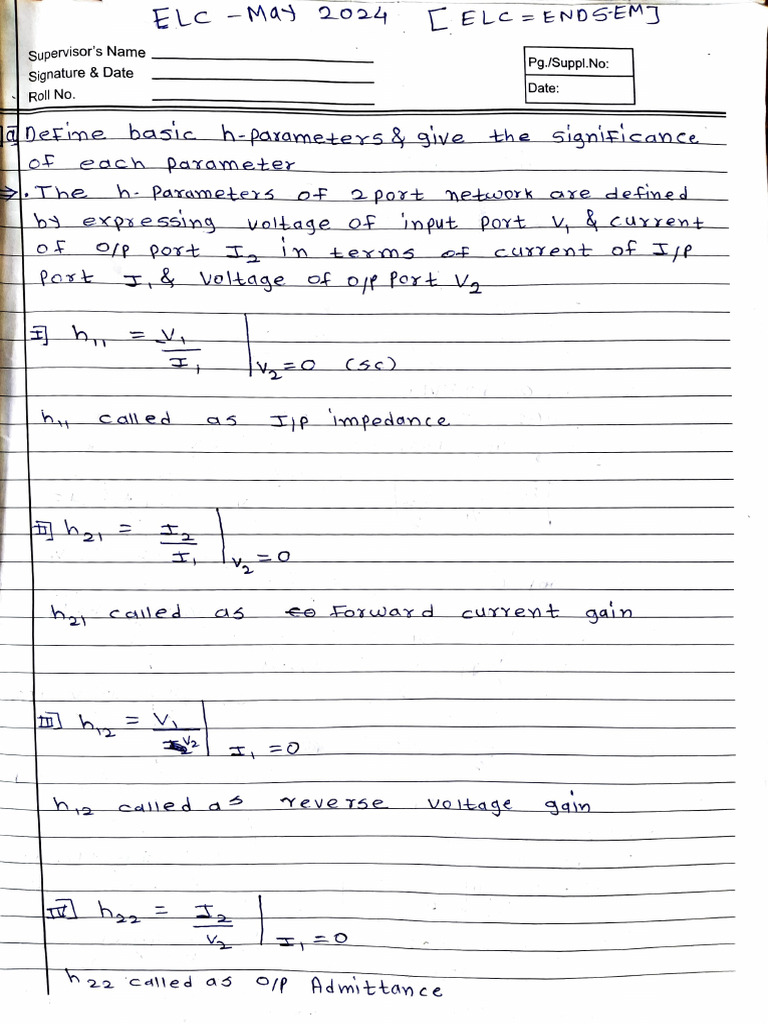 ELC - May 2024 [ELC = ENDSEM]
Supervisor's Name
Signature & Date
Roll No.
Pg./Suppl.No:
Date:
1a] Define basic h-parameters & give the significance
of each parameter
⇒ . The h-Parameters of 2 port network are defined
by expressing voltage of input port V₁ & current
of O/P port I₂ in terms of current of I/P
Port I₁ & Voltage of O/P Port V₂
I] h₁₁ = V₁/I₁ | V₂=0 (SC)
h₁₁ called as I/P impedance
II] h₂₁ = I₂/I₁ | V₂=0
h₂₁ called as Forward current gain
III] h₁₂ = V₁/V₂ | I₁=0
h₁₂ called as reverse voltage gain
IV] h₂₂ = I₂/V₂ | I₁=0
h₂₂ called as O/P Admittance